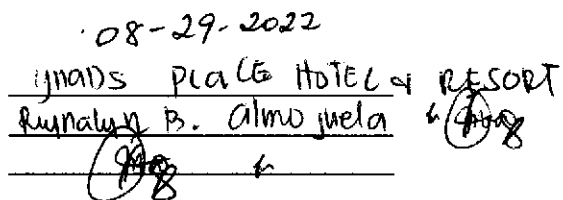 08-29-2022
ynads PLACE HOTEL & RESORT
Rujnalyn B. Almojuela